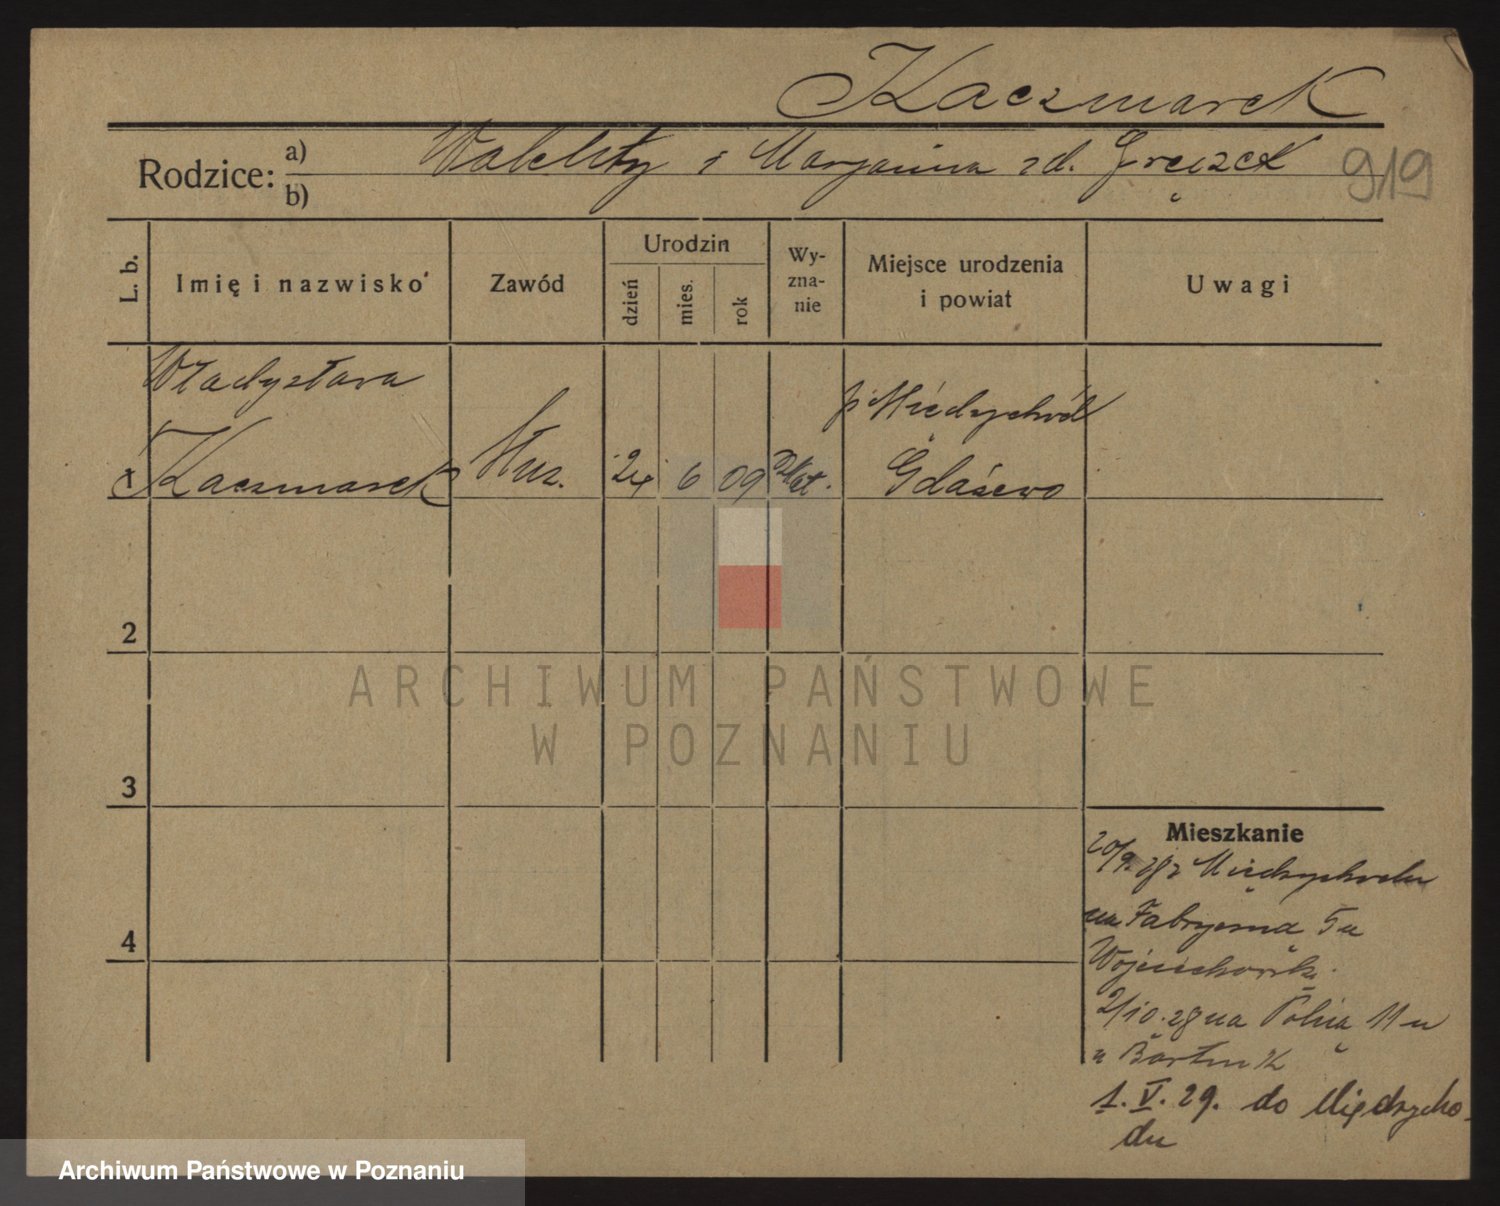 Kaczmarek
Rodzice: a) b) Walenty i Marjanna zd. 919
L. b.
Imię i nazwisko
Zawód
Urodzin
dzień
mies.
rok
Wy-
zna-
nie
Miejsce urodzenia
i powiat
Uwagi
Władysława
p Międzychód
1 Kaczmarek Służ. 24 6 09 rz kat.
2
ARCHIWUM PAŃSTWOWE
W POZNANIU
3
Mieszkanie
20/9.28 z Międzychodu
na Fabryczna 5 u
2/10.28 na Polną 11 u
1. V. 29. do Międzycho-
du
4
Archiwum Państwowe w Poznaniu